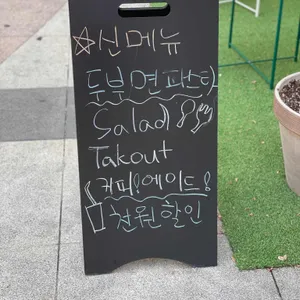 ☆신메뉴
두부면파스타
Salad
Takout
커피!에이드!
천원할인